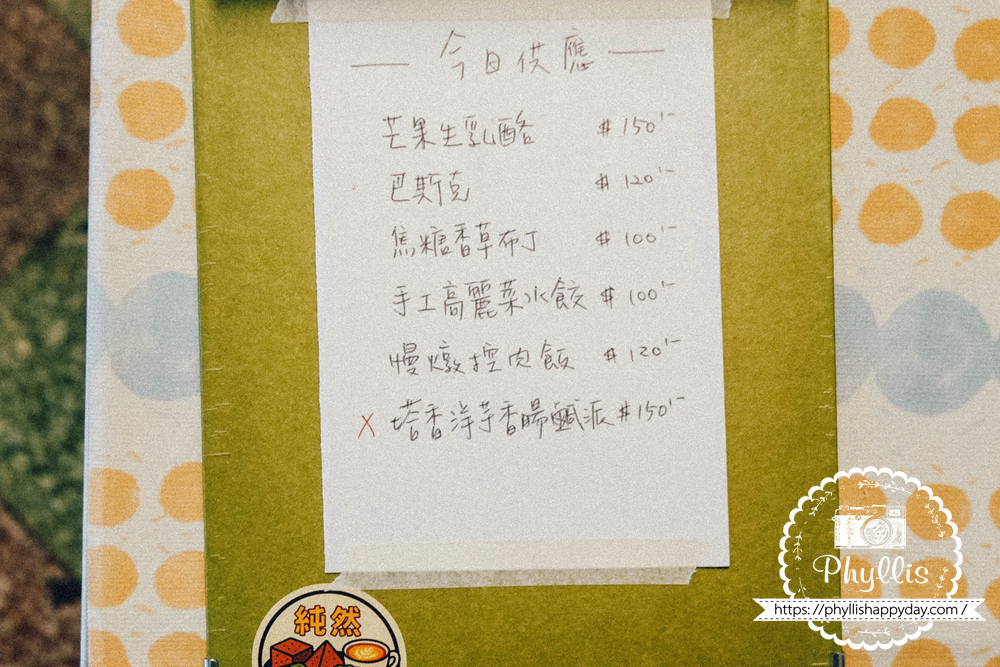 — 今日供應 —
芒果生乳酪 $150'-
巴斯克 $120'-
焦糖香草布丁 $100'-
手工高麗菜水餃 $100'-
慢燉控肉飯 $120'-
X 塔香洋芋香腸鹹派 $150'-
純然
Phyllis
https://phyllishappyday.com/